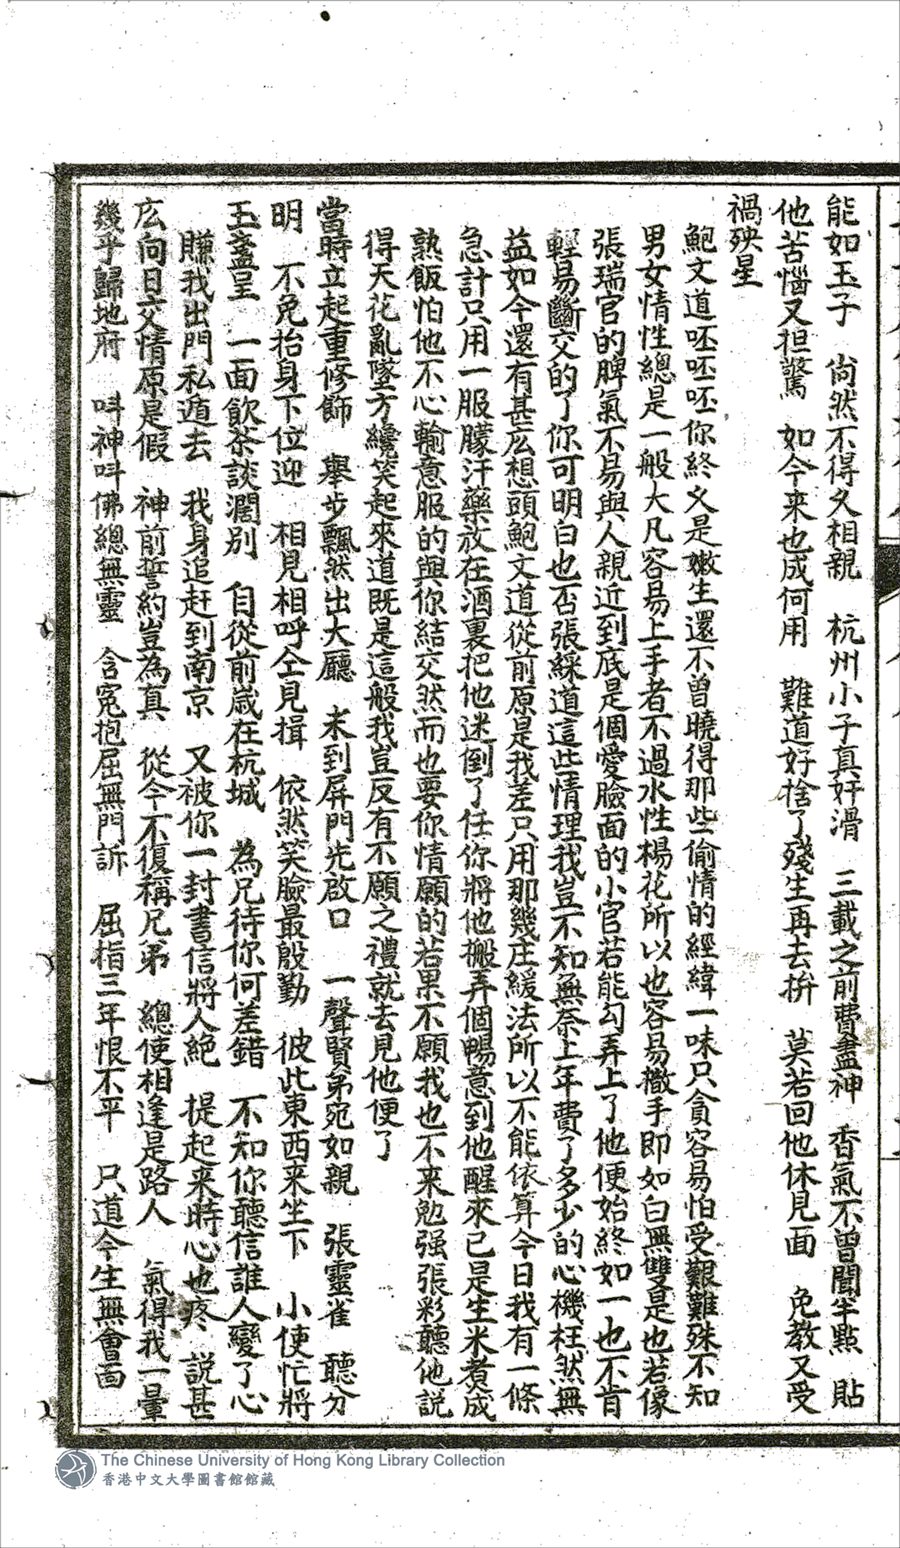 能如玉子　尙然不得久相親　杭州小子眞奸滑　三載之前費盡神　香氣不曾聞半點　貼
他苦惱又担驚　如今来也成何用　難道好捨了殘生再去拚　莫若回他休見面　免教又受
禍殃星
鮑文道呸呸呸你終久是嫩生還不曾曉得那些偷情的經緯一味只貪容易怕受艱難殊不知
男女情性總是一般大凡容易上手者不過水性楊花所以也容易撒手即如白無雙是也若像
張瑞官的脾氣不易與人親近到底是個愛臉面的小官若能勾弄上了他便始終如一也不肯
輕易斷交的了你可明白也否張綵道這些情理我豈不知無奈上年費了多少的心機枉然無
益如今還有甚庅想頭鮑文道從前原是我差只用那幾庄緩法所以不能依算今日我有一條
急計只用一服朦汗藥放在酒裏把他迷倒了任你將他搬弄個暢意到他醒來已是生米煮成
熟飯怕他不心輸意服的與你結交然而也要你情願的若果不願我也不来勉强張彩聽他説
得天花亂墜方纔笑起來道既是這般我豈反有不願之禮就去見他便了
當時立起重修飾　舉步飄然出大廳　未到屏門先啟口　一聲賢弟宛如親　張靈雀　聽分
明　不免抬身下位迎　相見相呼仝見揖　依然笑臉最殷勤　彼此東西来坐下　小使忙將
玉盞呈　一面飲茶談濶别　自從前嵗在杭城　為兄待你何差錯　不知你聽信誰人變了心
賺我出門私遁去　我身追赶到南京　又被你一封書信將人絶　提起來時心也疼　説甚
庅向日交情原是假　神前誓約豈為真　從今不復稱兄弟　總使相逢是路人　氣得我一暈
幾乎歸地府　呌神呌佛總無靈　含冤抱屈無門訴　屈指三年恨不平　只道今生無會面
The Chinese University of Hong Kong Library Collection
香港中文大學圖書館館藏